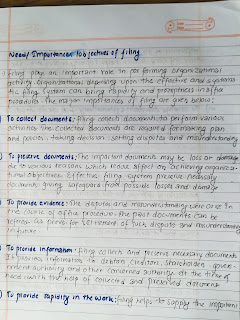 Need/Importance/objectives of filing
Filing plan an important role in performing organizational
activity. Organizational depending upon the effective and systema
tic filing system can bring rapidity and promptness in office
procedures. The major importances of filing are given below;
To collect documents: Filing collects documents to perform various
activities. The collected documents are required for making plan
and policies, taking decision, settling disputes and misunderstanding
To preserve documents: The important documents may be loss or damage
due to various reasons which makes affect on achieving organiza-
tional objectives. Effective filing system preserve necessary
documents giving safeguard from possible losses and damage
To provide evidence: The dispute and misunderstanding may arise in
the course of office procedure. The past documents can be
refined as proves for settlement of such dispute and misunderstanding
in future.
To provide information: Filing collects and preserve necessary documents
It provides information to debtors, creditors, shareholders, gover-
nment authority and other concerned authority at the time of
need with the help of collected and preserved document.
To provide rapidity in the work: Filing helps to supply the important